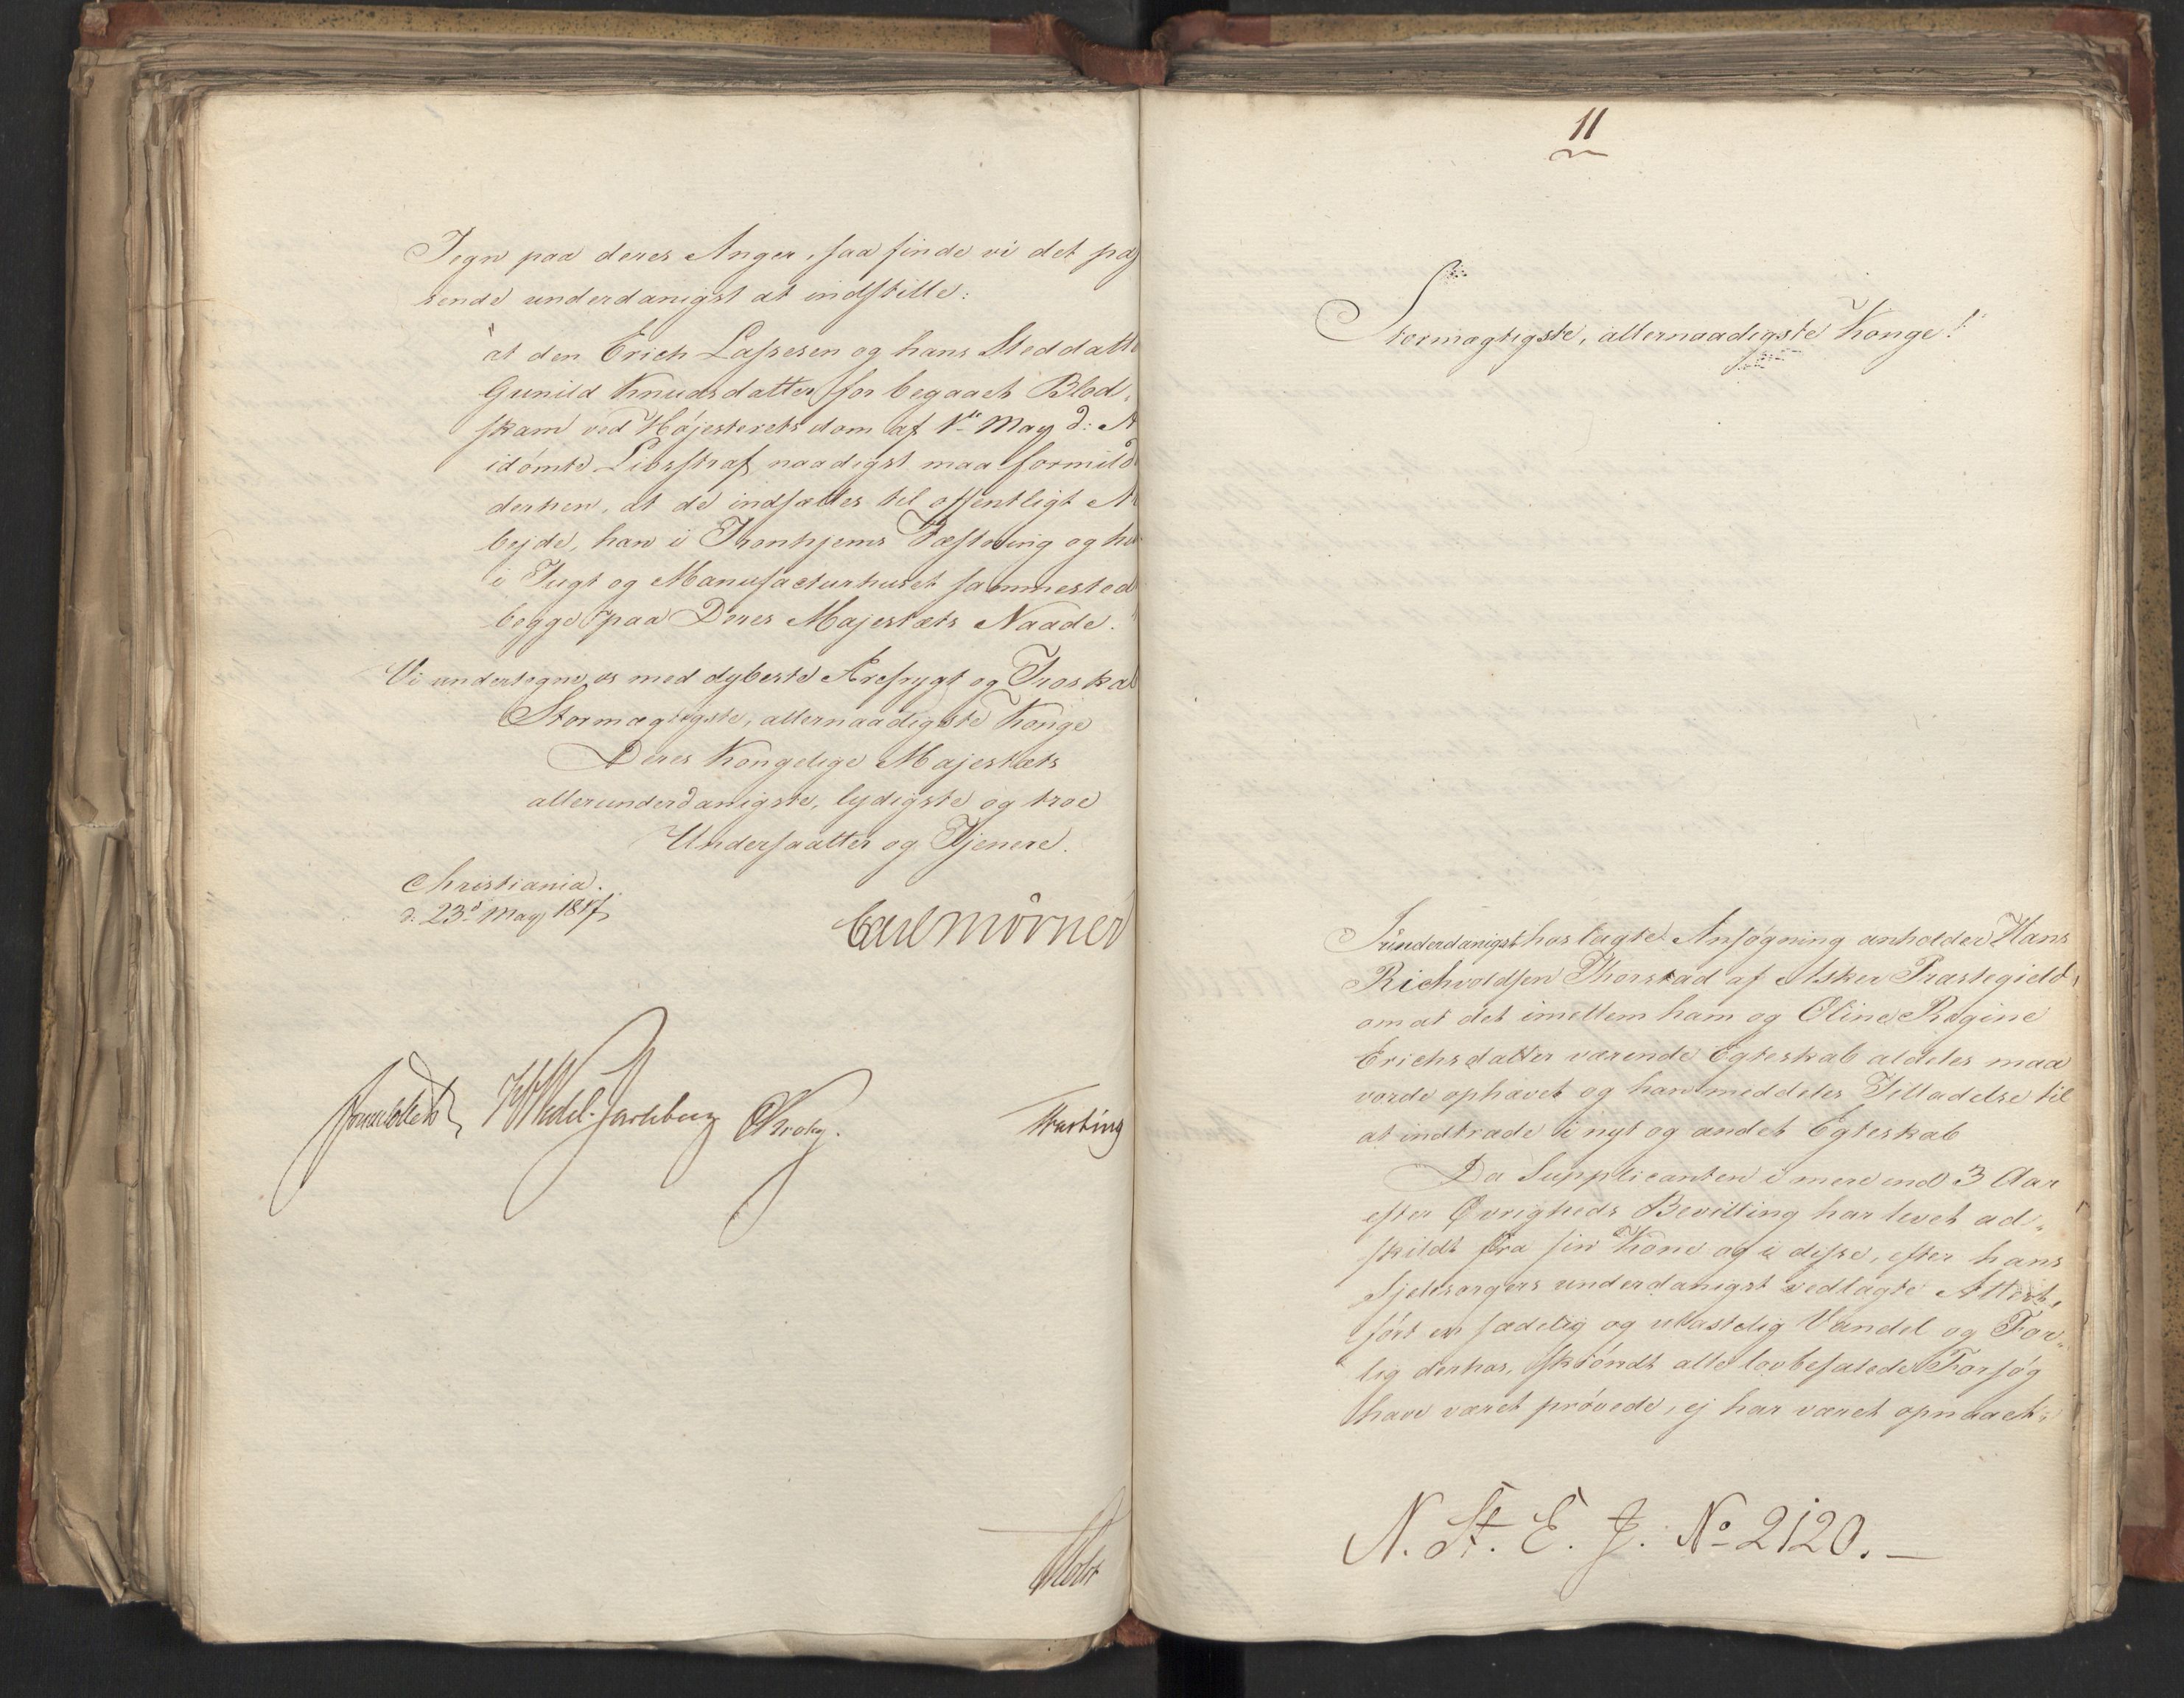 Tegn paa deres Anger, saa finde vi det pas
sende underdanigst at indstille:
"at den Erich Lassesen og hans Steddatte
Gunild Knudsdatter for begaaet Blod-
skam ved Høiesteretsdom af 1ste May d: A
idømte Livsstraf naadigst maa formild
derhen, at de indsættes til offentligt A
bejde, han i Tronhjems Fæstning og h
i Tugt og Manufacturhuset sammested
begge paa Deres Majestæts Naade."
Vi undertegne os med dybeste Ærefrygt og Troskab
Stormægtigste, allernaadigste Konge
Deres Kongelige Majestæts
allerunderdanigste, lydigste og troe
Undersaatter og Tjenere.
Christiania.
d: 23d May 1817
Carl Mörner
Sommerhielm HWedel-Jarlsberg CKrohg. Hersleb
Holst
11
Stormægtigste, allernaadigste Konge!
I underdanigst hoslagte Ansøgning anholder Hans
Richvoldsen Thorstad af Asker Præstegield,
om at det imellem ham og Oline Regine
Erichsdatter værende Egteskab aldeles maa
vorde ophævet og ham meddeles Tilladelse til
at indtræde i nyt og andet Egteskab
Da Supplicanten i mere end 3 Aar
efter Øvrigheds Bevilling har levet ad-
skildt fra sin Kone og i disse, efter hans
Sjelesørgers underdanigst vedlagte Attest,
ført en sædelig og ulastelig Vandel og For-
lig derhos, skiøndt alle lovbefalede Forsøg
have været prøvede, ej har været opnaaet;
N. St. E. J. No 2120.—